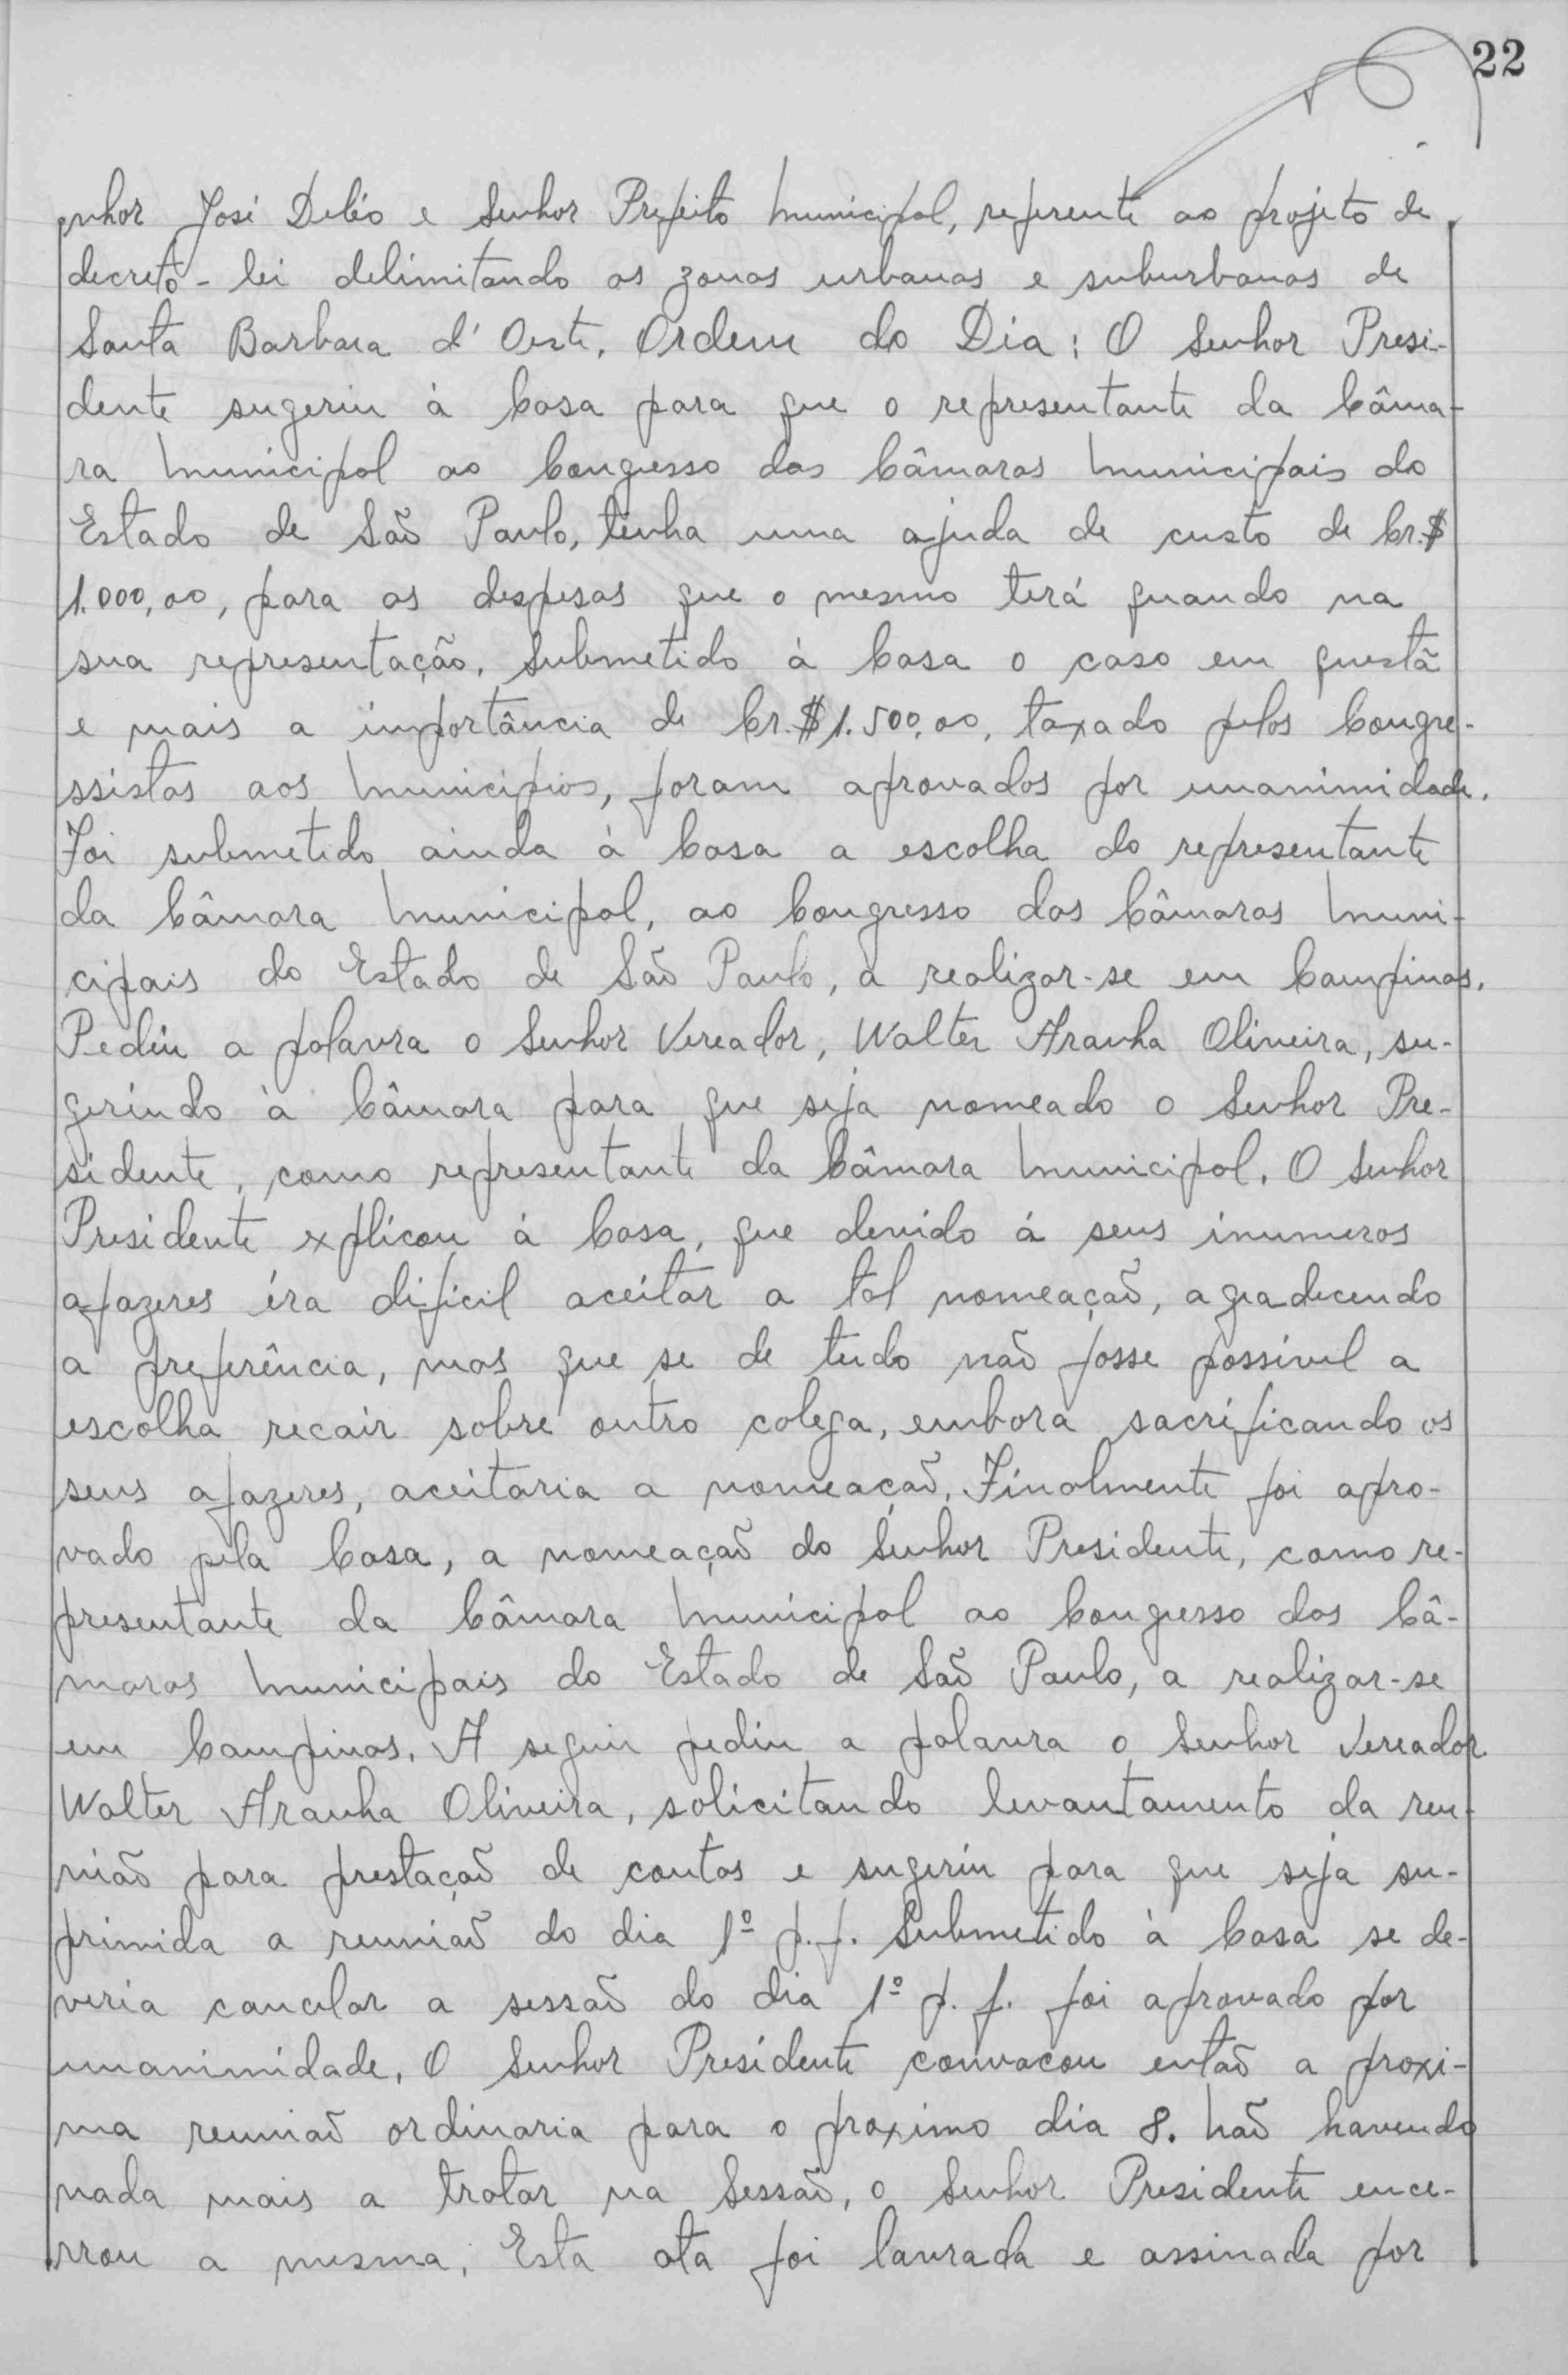 22
nhor José Deléo e Senhor Prefeito Municipal, referente ao projeto de
decreto-lei delimitando as zonas urbanas e suburbanas de
Santa Barbara d'Oeste. Ordem do Dia: O Senhor Presi-
dente sugeriu à Casa para que o representante da Câma-
ra Municipal ao Congresso das Câmaras Municipais do
Estado de São Paulo, tenha uma ajuda de custo de Cr.$
1.000,00, para as despesas que o mesmo terá quando na
sua representação. Submetido à Casa o caso em questã
e mais a importância de Cr.$1.500,00, taxado pelos Congre-
ssistas aos Municipios, foram aprovados por unanimidade.
Foi submetido ainda à Casa a escolha do representante
da Câmara Municipal, ao Congresso das Câmaras Muni-
cipais do Estado de São Paulo, a realizar-se em Campinas.
Pediu a palavra o Senhor Vereador, Walter Aranha Oliveira, su-
gerindo à Câmara para que seja nomeado o Senhor Pre-
sidente, como representante da Câmara Municipal. O Senhor
Presidente explicou à Casa, que devido á seus inumeros
afazeres éra dificil aceitar a tal nomeação, agradecendo
a preferência, mas que se de tudo não fosse possivel a
escolha recair sobre outro colega, embora sacrificando os
seus afazeres, aceitaria a nomeação. Finalmente foi apro-
vado pela Casa, a nomeação do Senhor Presidente, como re-
presentante da Câmara Municipal ao Congresso das Câ-
maras Municipais do Estado de São Paulo, a realizar-se
em Campinas. A seguir pediu a palavra o Senhor Vereador
Walter Aranha Oliveira, solicitando levantamento da reu-
nião para prestação de contas e sugeriu para que seja su-
primida a reunião do dia 1º p.f. Submetido à Casa se de-
veria cancelar a sessão do dia 1º p.f. foi aprovado por
unanimidade. O Senhor Presidente convocou então a proxi-
ma reunião ordinaria para o proximo dia 8. Não havendo
nada mais a tratar na Sessão, o Senhor Presidente ence-
rrou a mesma. Esta ata foi lavrada e assinada por